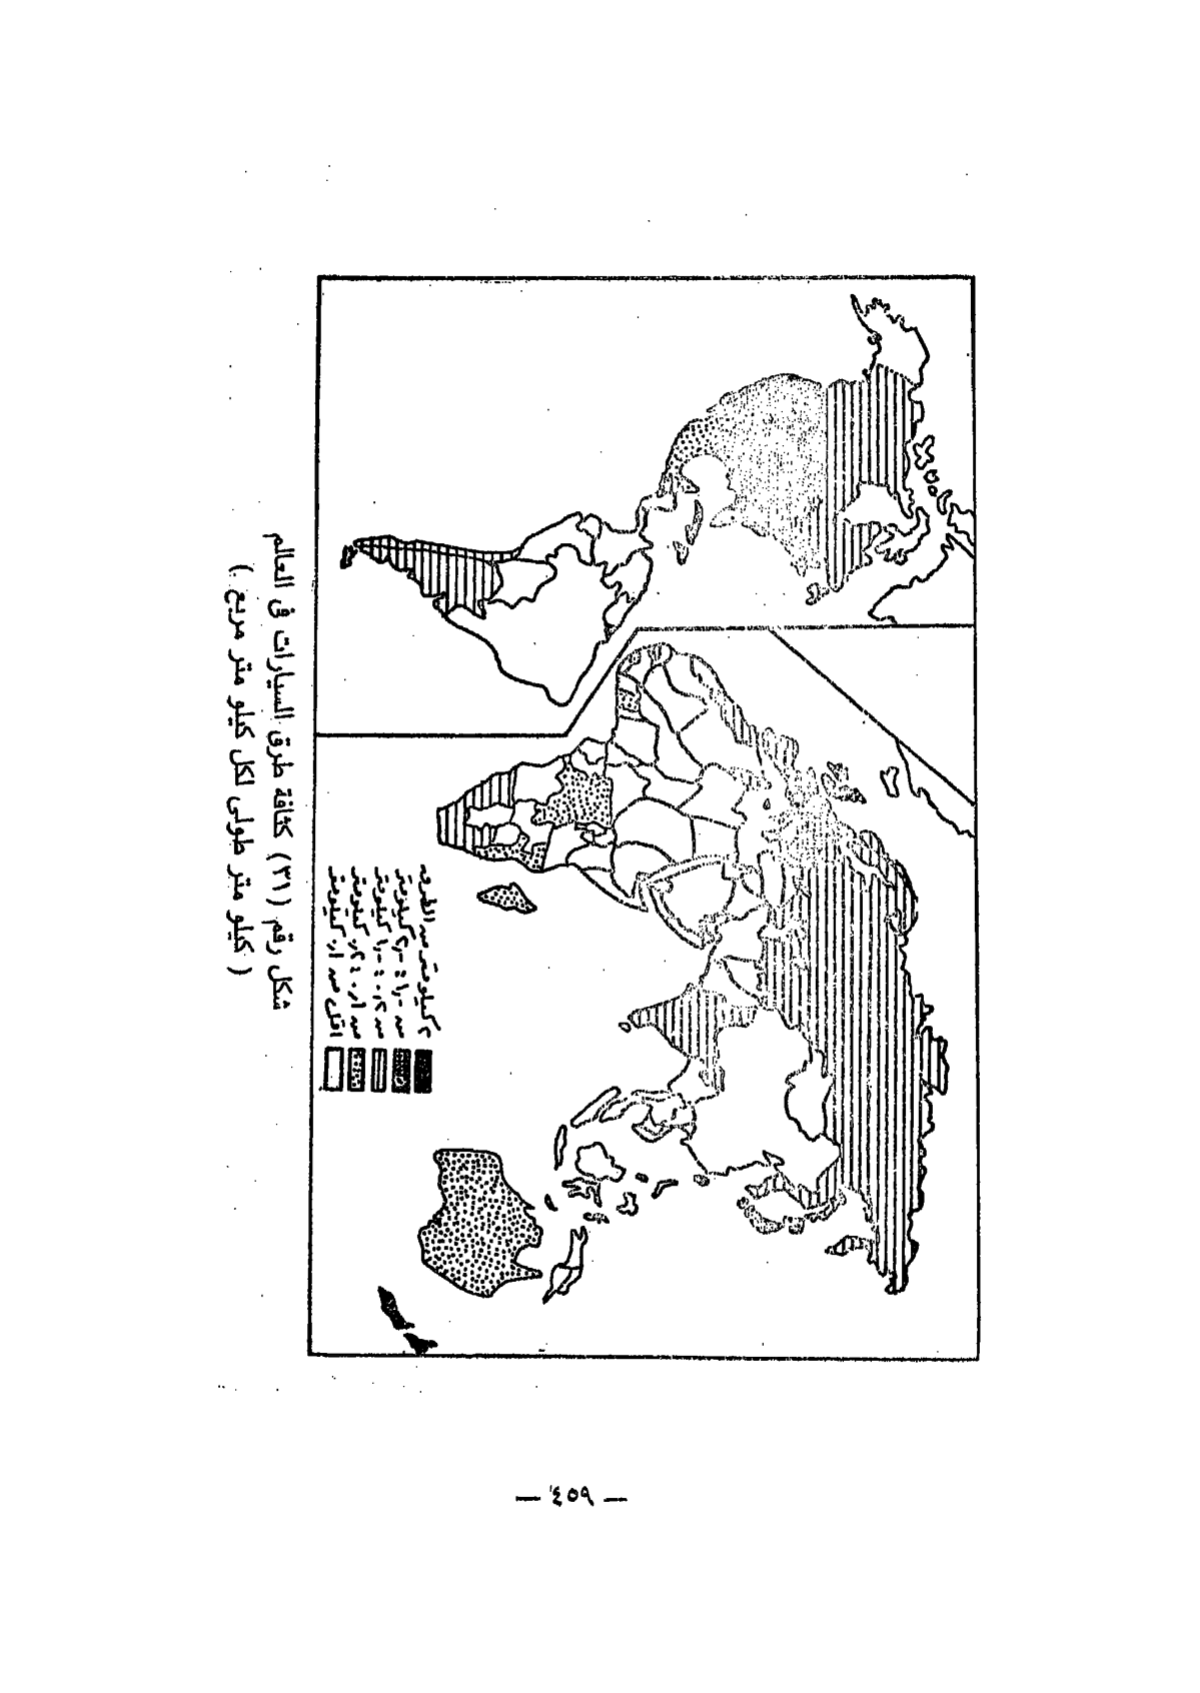 ٢ كيلومتر من الطرق
من ١٫٠ : ٢٫٠ كيلومتر
من ٠٫٢ : ١٫٠ كيلومتر
من ٠٫١ : ٠٫٢ كيلومتر
اقل من ٠٫١ كيلومتر
شكل رقم (٣١) كثافة طرق السيارات فى العالم
( كيلو متر طولى لكل كيلو متر مربع )
— ٤٥٩ —